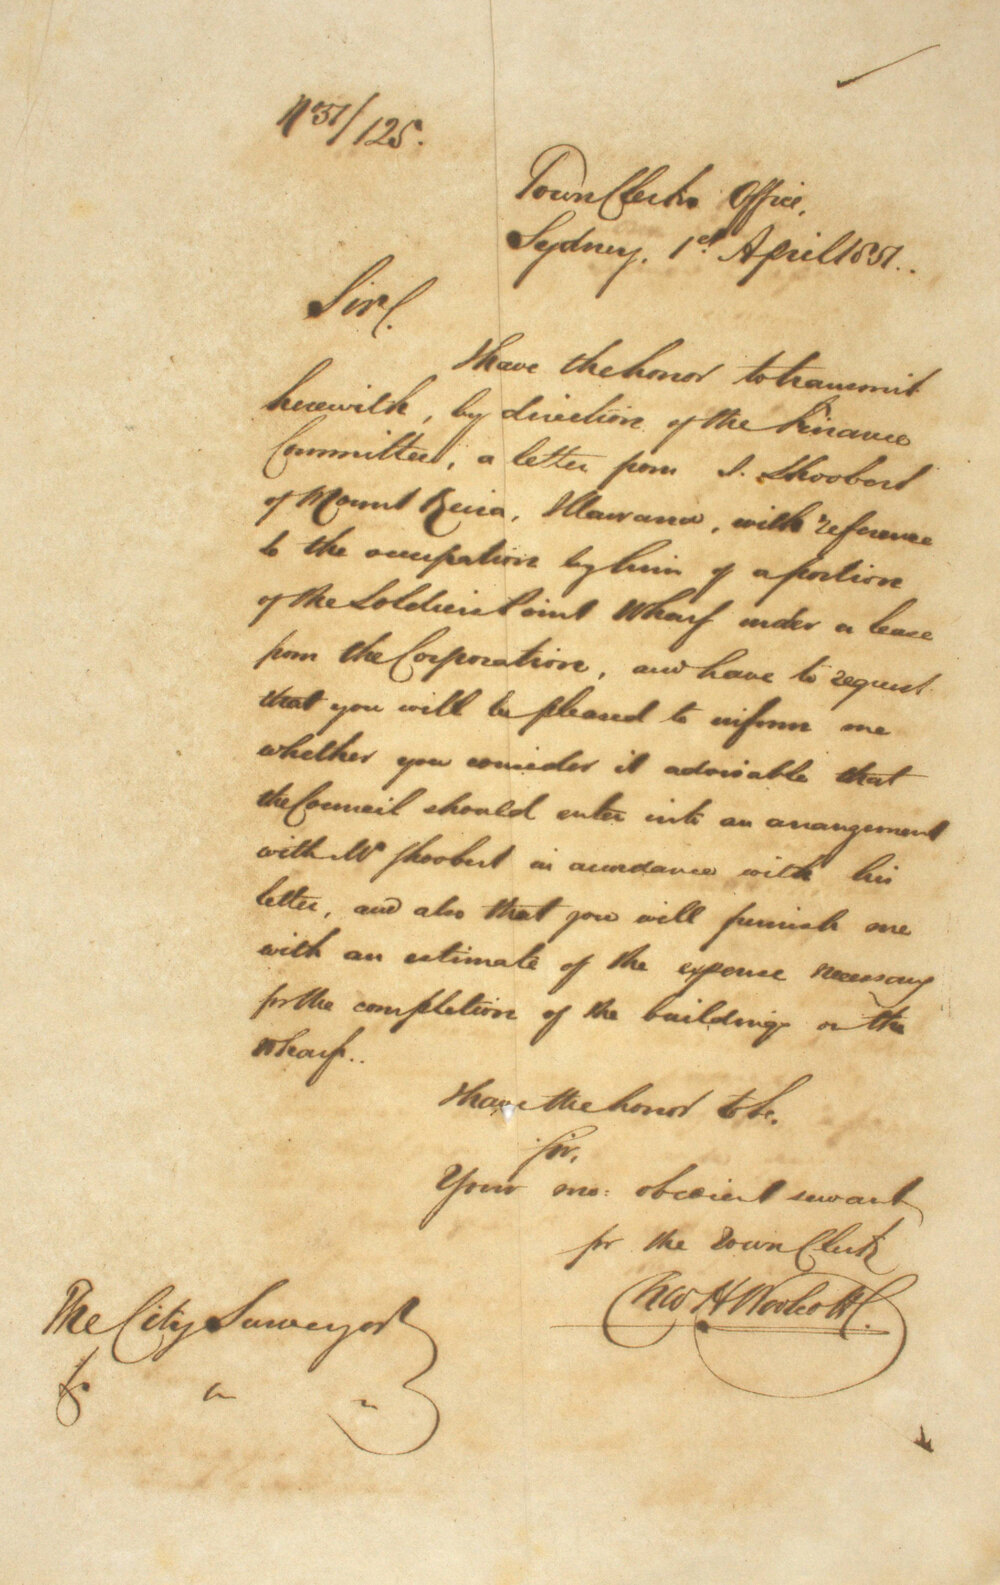 No 51/125.
Town Clerks Office,
Sydney, 1st April 1851.
Sir,
I have the honor to transmit
herewith, by direction of the Finance
Committee, a letter from J. Shoobert
of Mount Keira, Illawarra, with reference
to the occupation by him of a portion
of the Soldiers Point Wharf under a lease
from the Corporation, and have to request
that you will be pleased to inform me
whether you consider it advisable that
the Council should enter into an arrangement
with Mr Shoobert in accordance with his
letter, and also that you will furnish me
with an estimate of the expense necessary
for the completion of the buildings on the
Wharf.
I have the honor to be,
Sir,
Your mo: obedient servant
for the Town Clerk
Chas H Woolcott
The City Surveyor
&c " "